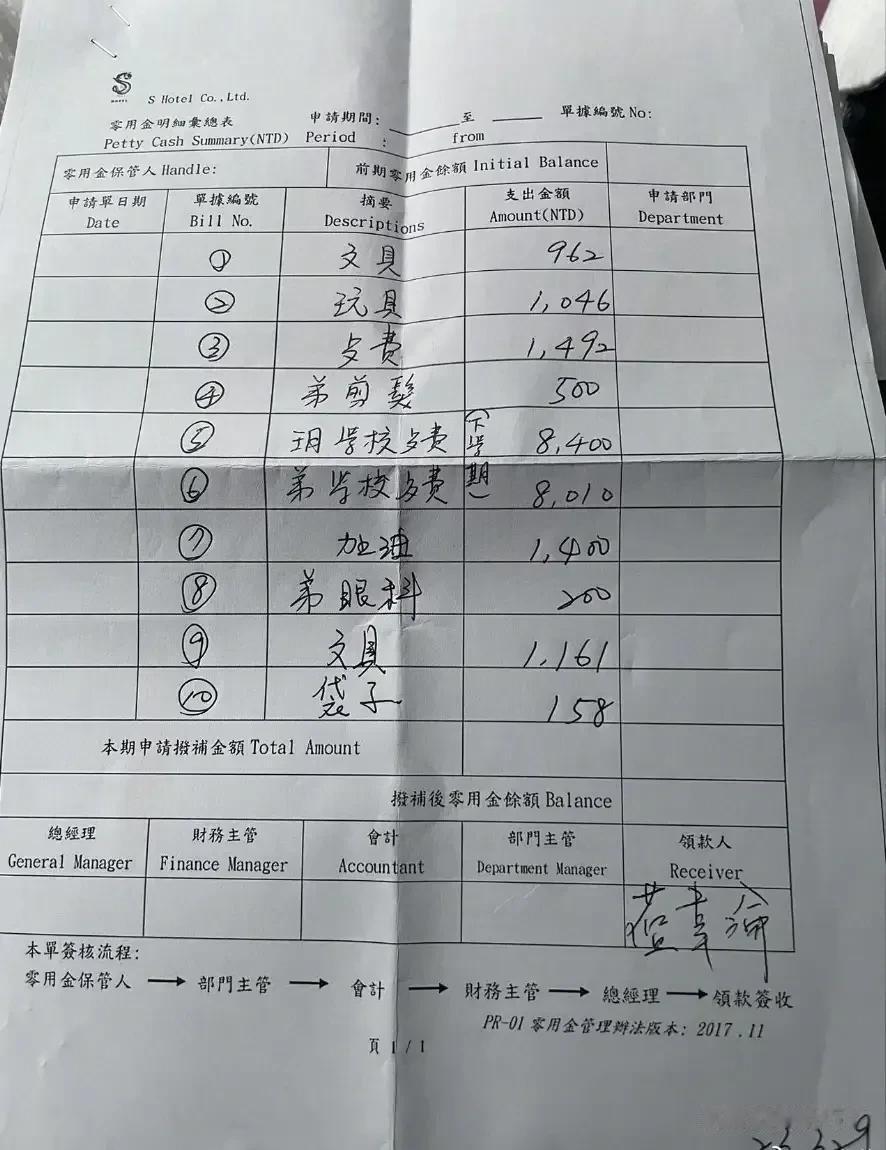 S Hotel Co.,Ltd.
零用金明細彙總表 申請期間: 至 單據編號 No:
Petty Cash Summary(NTD) Period : from
零用金保管人 Handle: 前期零用金餘額 Initial Balance
申請單日期 單據編號 摘要 支出金額 申請部門
Date Bill No. Descriptions Amount(NTD) Department
① 文具 962
② 玩具 1,046
③ 歺費 1,492
④ 弟剪髮 500
⑤ 玥學校歺費(下學期) 8,400
⑥ 弟學校歺費 8,010
⑦ 加油 1,400
⑧ 弟眼科 200
⑨ 文具 1,161
⑩ 袋子 158
本期申請撥補金額 Total Amount
撥補後零用金餘額 Balance
總經理 財務主管 會計 部門主管 領款人
General Manager Finance Manager Accountant Department Manager Receiver
本單簽核流程:
零用金保管人 → 部門主管 → 會計 → 財務主管 → 總經理 → 領款簽收
PR-01 零用金管理辦法版本: 2017.11
頁 1 / 1